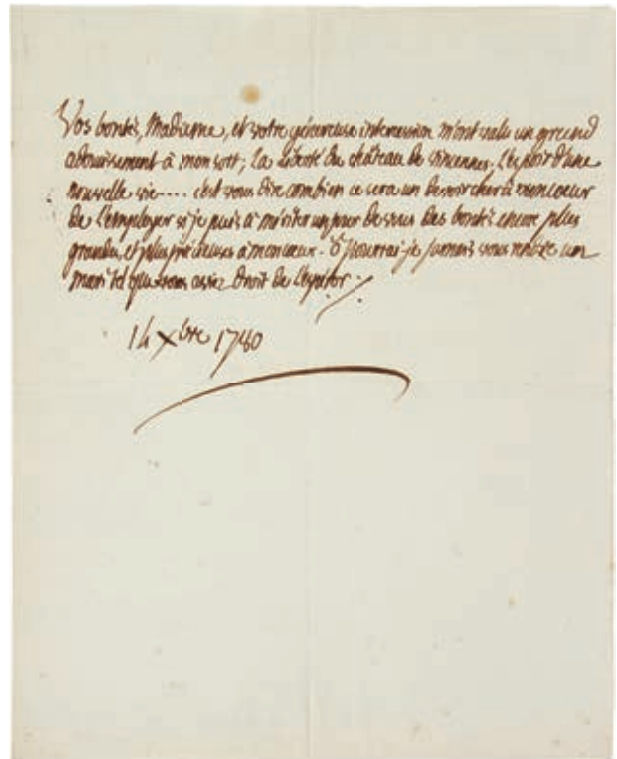 Vos bontés, Madame, et votre généreuse intercession m'ont valu un grand
adoucissement à mon sort; la liberté du château de Vincennes, l'espoir d'une
nouvelle vie---- c'est vous dire combien ce sera un devoir cher à mon coeur
de l'employer si je puis à mériter un jour de vous des bontés encore plus
grandes, et plus précieuses à mon coeur. O pourrai-je jamais vous rendre un
mari tel que vous aviez droit de l'espérer.
14 Xbre 1780